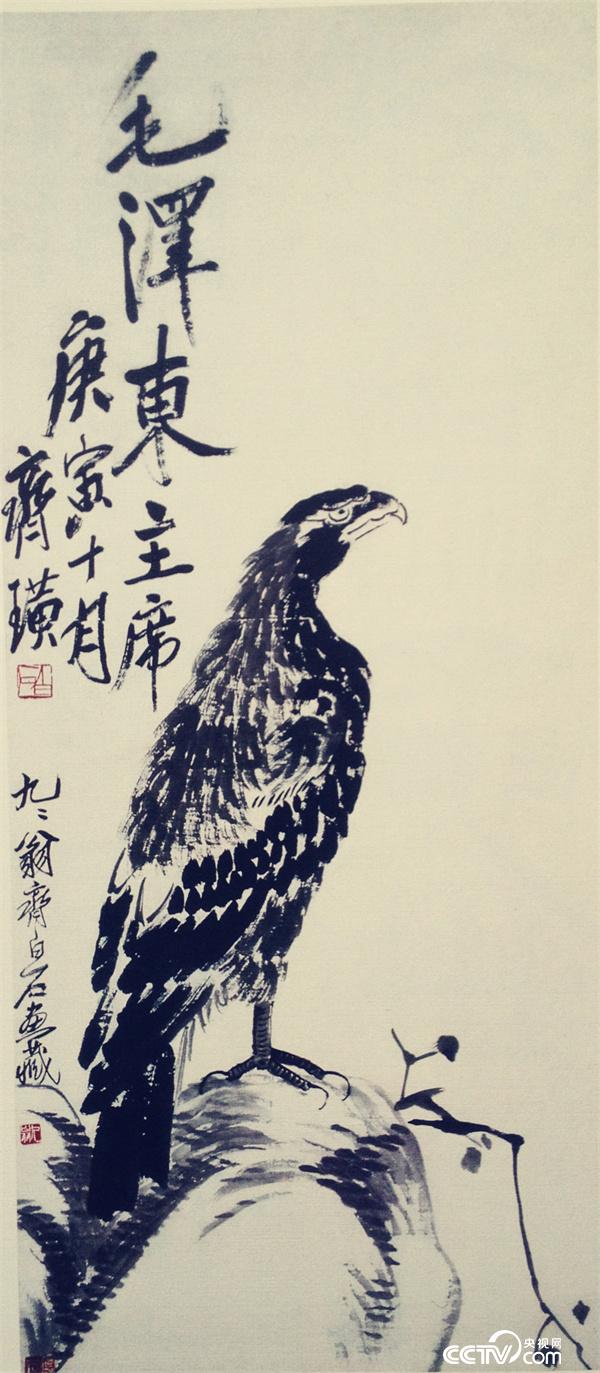 毛澤東主席
庚寅十月
齊璜
九二翁齊白石畫藏
央视网
CCTV.com